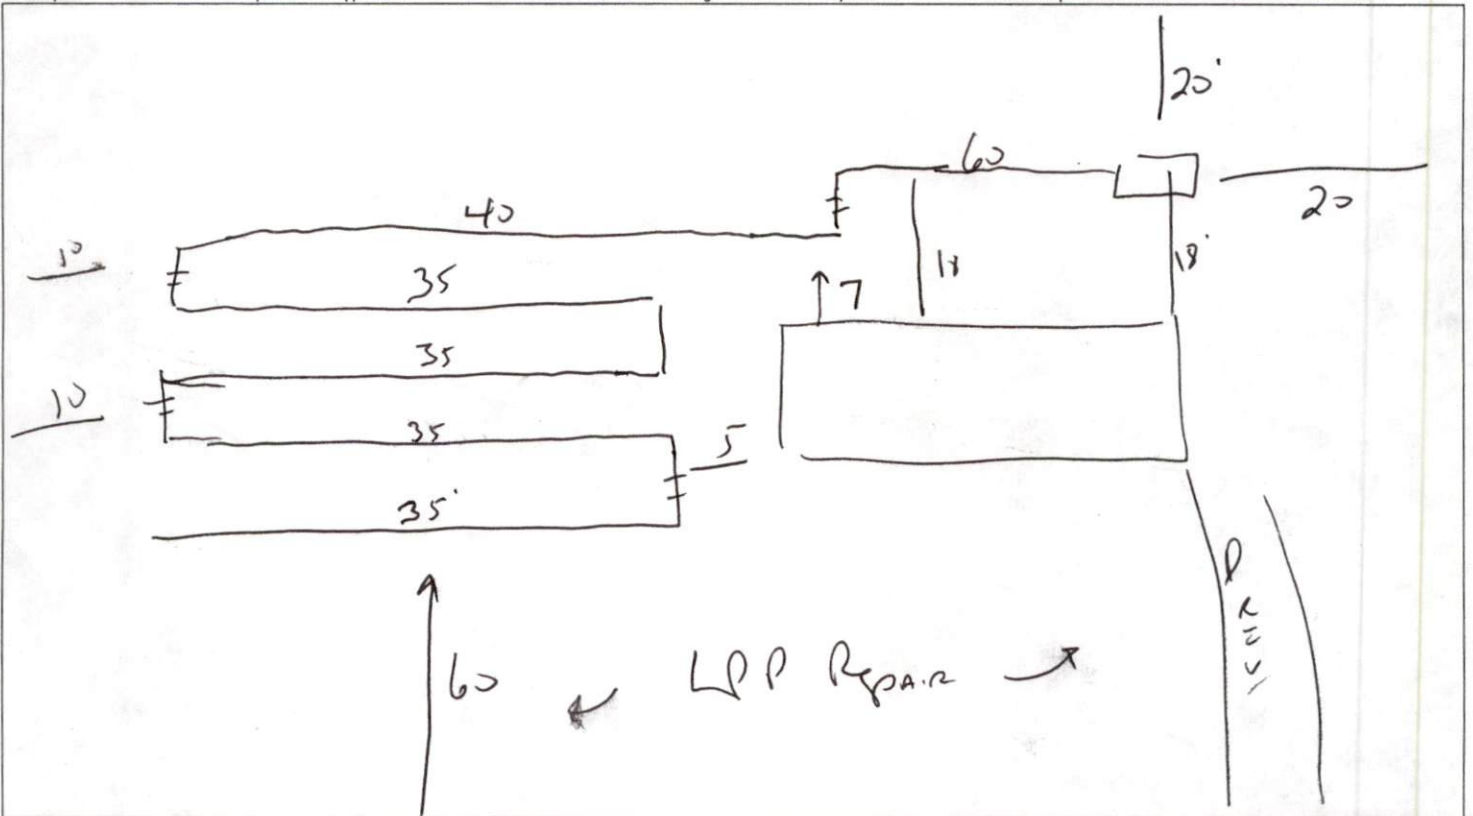 20'
60
20
40
10
35
18
18'
7
35
10
35
5
35'
60
LPP Repair